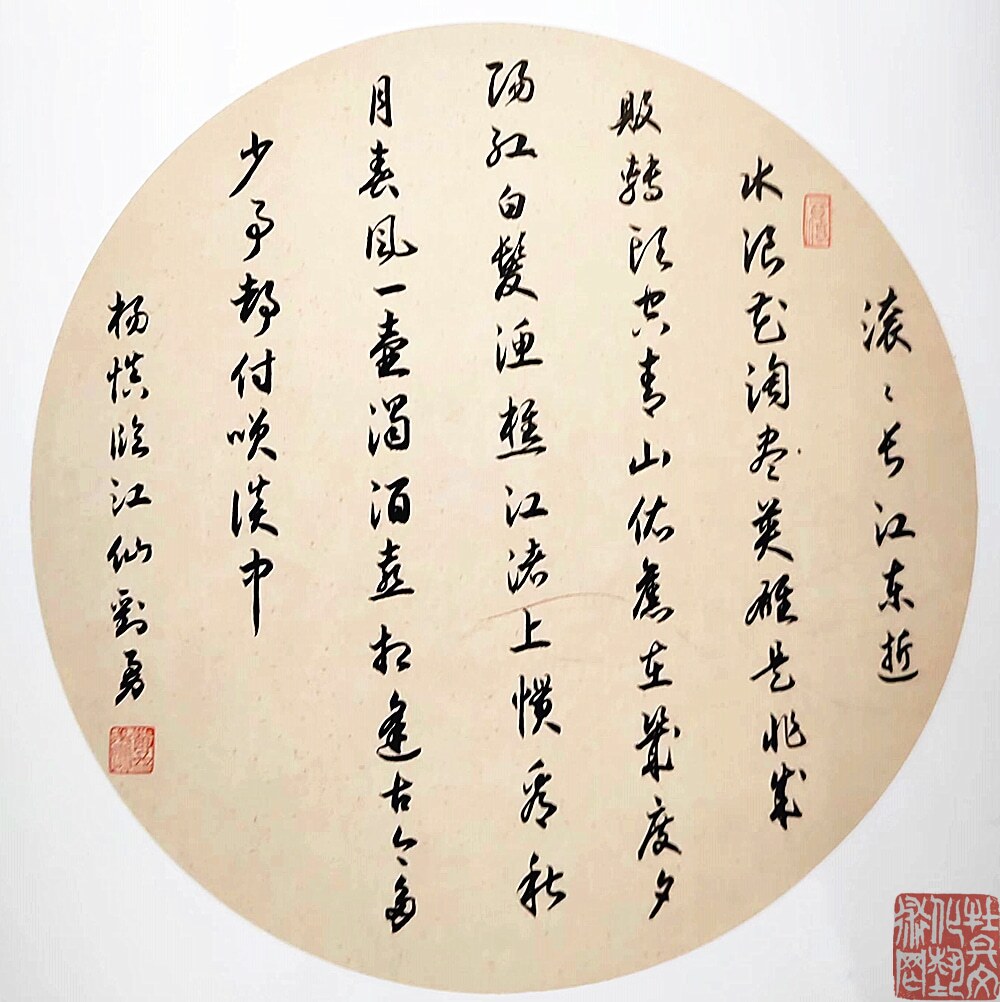 滚〻长江东逝
水浪花淘尽英雄是非成
敗轉头空青山依舊在幾度夕
陽红白髮渔樵江渚上惯看秋
月春風一壶濁酒喜相逢古今多
少事都付笑谈中
杨慎临江仙劉勇